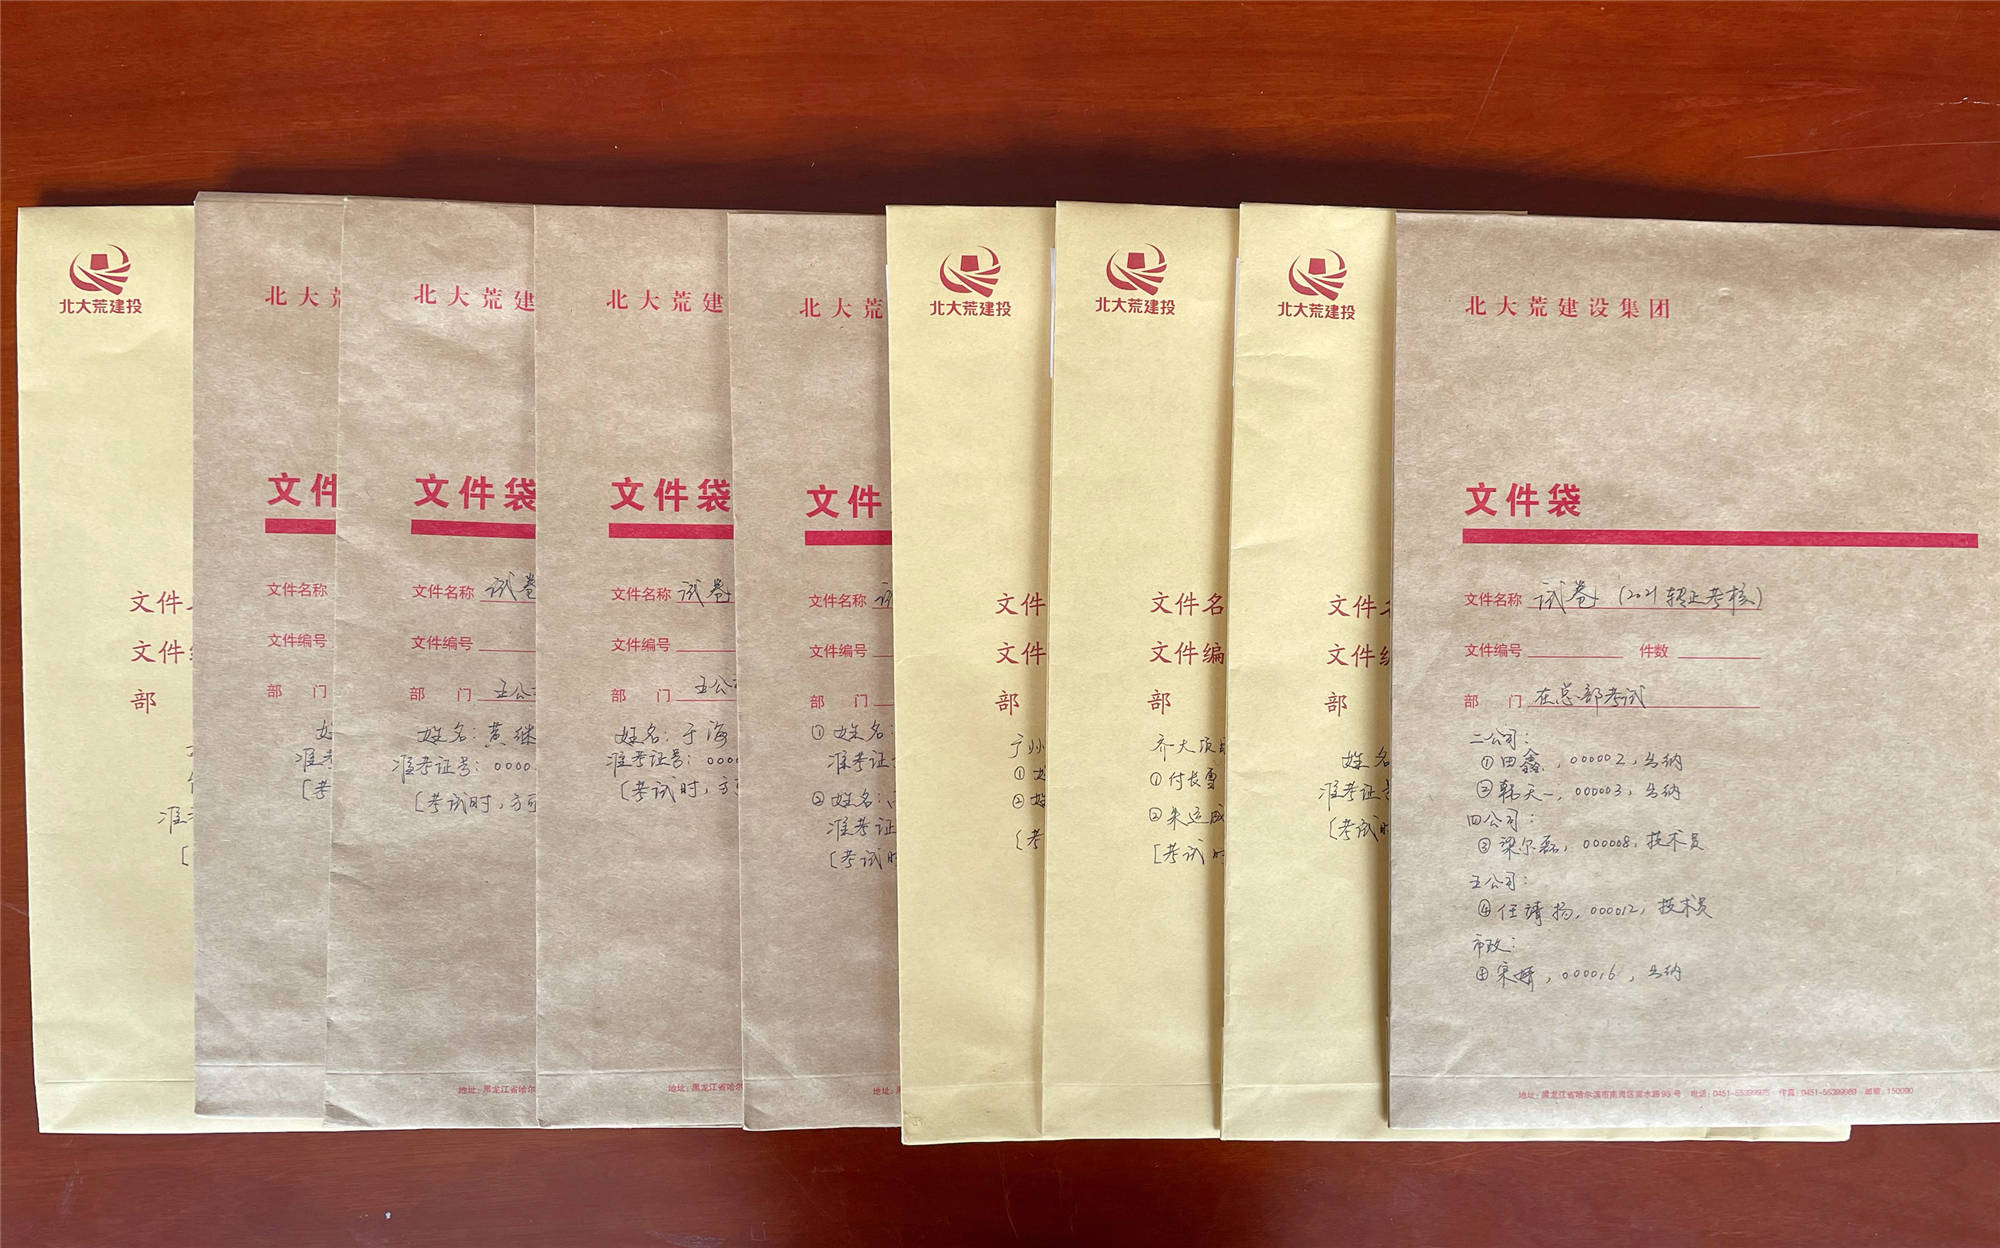 北大荒建投
文件
文件
部
准考
北大荒
文件
文件名称
文件编号
部 门
准考
[考
北大荒建
文件袋
文件名称 试卷
文件编号
部 门 五公
姓名: 黄继
准考证号: 0000
[考试时,方可
地址:黑龙江省哈尔
北大荒建
文件袋
文件名称 试卷
文件编号
部 门 五公
姓名: 于海
准考证号: 0000
[考试时,方可
地址:黑龙江省哈尔
北大荒
文件
文件名称 试
文件编号
部 门
①姓名:
准考证
②姓名:
准考证
[考试时
地址:
北大荒建投
文件
文件
部
①姓
②姓
[考
北大荒建投
文件名
文件编
部
齐大项目
①付长雪
②朱运成
[考试时
北大荒建投
文件
文件编
部
姓名
准考证号
[考试时
北大荒建设集团
文件袋
文件名称 试卷 (2021转正考核)
文件编号 件数
部 门 在总部考试
二公司:
①田鑫,000002,出纳
②韩天一,000003,出纳
四公司:
③梁尔磊,000008,技术员
五公司:
④任靖扬,000012,技术员
市政:
④宋婧,000016,出纳
地址:黑龙江省哈尔滨市南岗区嵩水路93号 电话:0451-55399975 传真:0451-55399989 邮编:150090